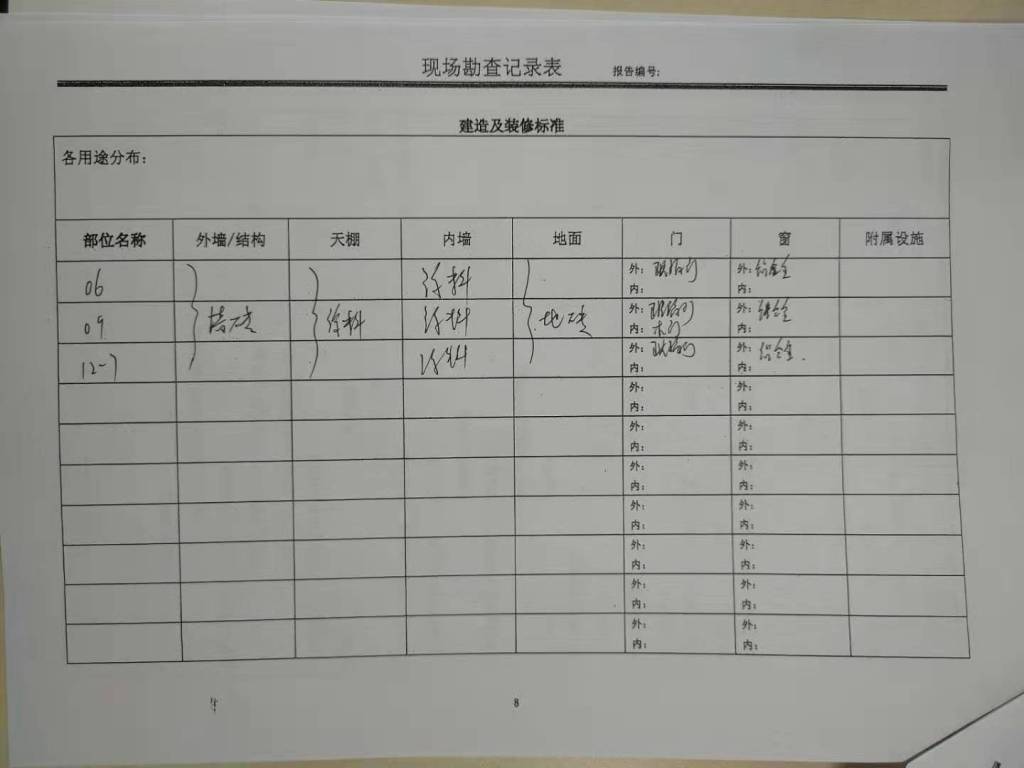 现场勘查记录表 报告编号:
建造及装修标准
各用途分布:
部位名称 外墙/结构 天棚 内墙 地面 门 窗 附属设施
06 涂料 外: 外:铝合金
内: 内:
09 墙砖 涂料 涂料 地砖 外: 外:铝合金
内:木门 内:
12-7 涂料 外: 外:铝合金
内: 内:
外: 外:
内: 内:
外: 外:
内: 内:
外: 外:
内: 内:
外: 外:
内: 内:
外: 外:
内: 内:
外: 外:
内: 内:
外: 外:
内: 内:
8